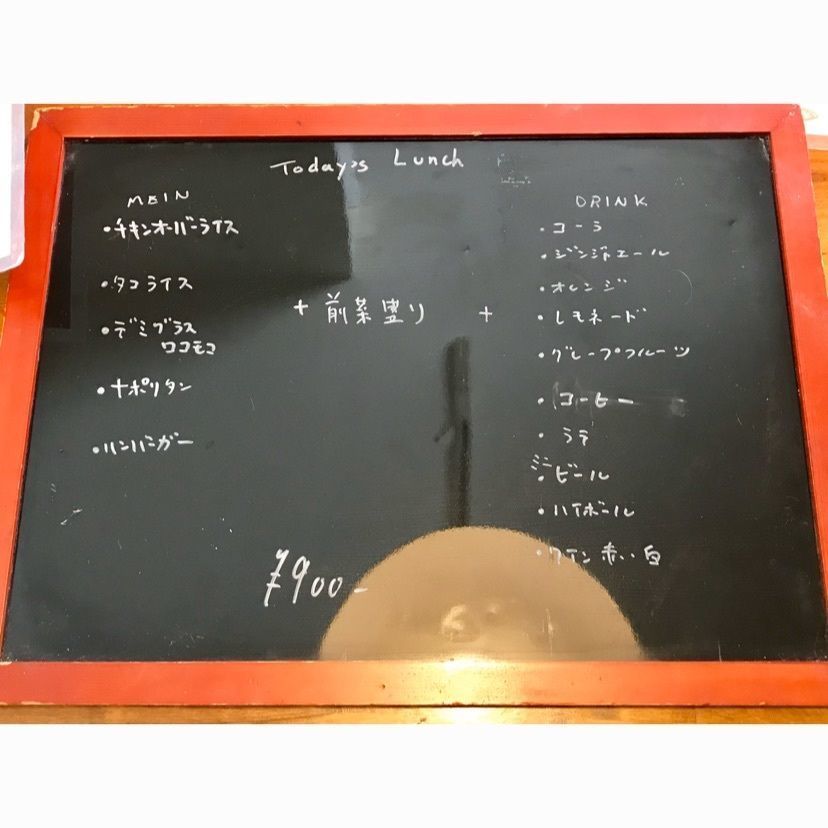 Today's Lunch
MEIN
・チキンオーバーライス
・タコライス
・デミグラス
ロコモコ
・ナポリタン
・ハンバーガー
+ 前菜盛り +
DRINK
・コーラ
・ジンジャエール
・オレンジ
・レモネード
・グレープフルーツ
・コーヒー
・ラテ
・ミニビール
・ハイボール
・ワイン赤い白
¥900-